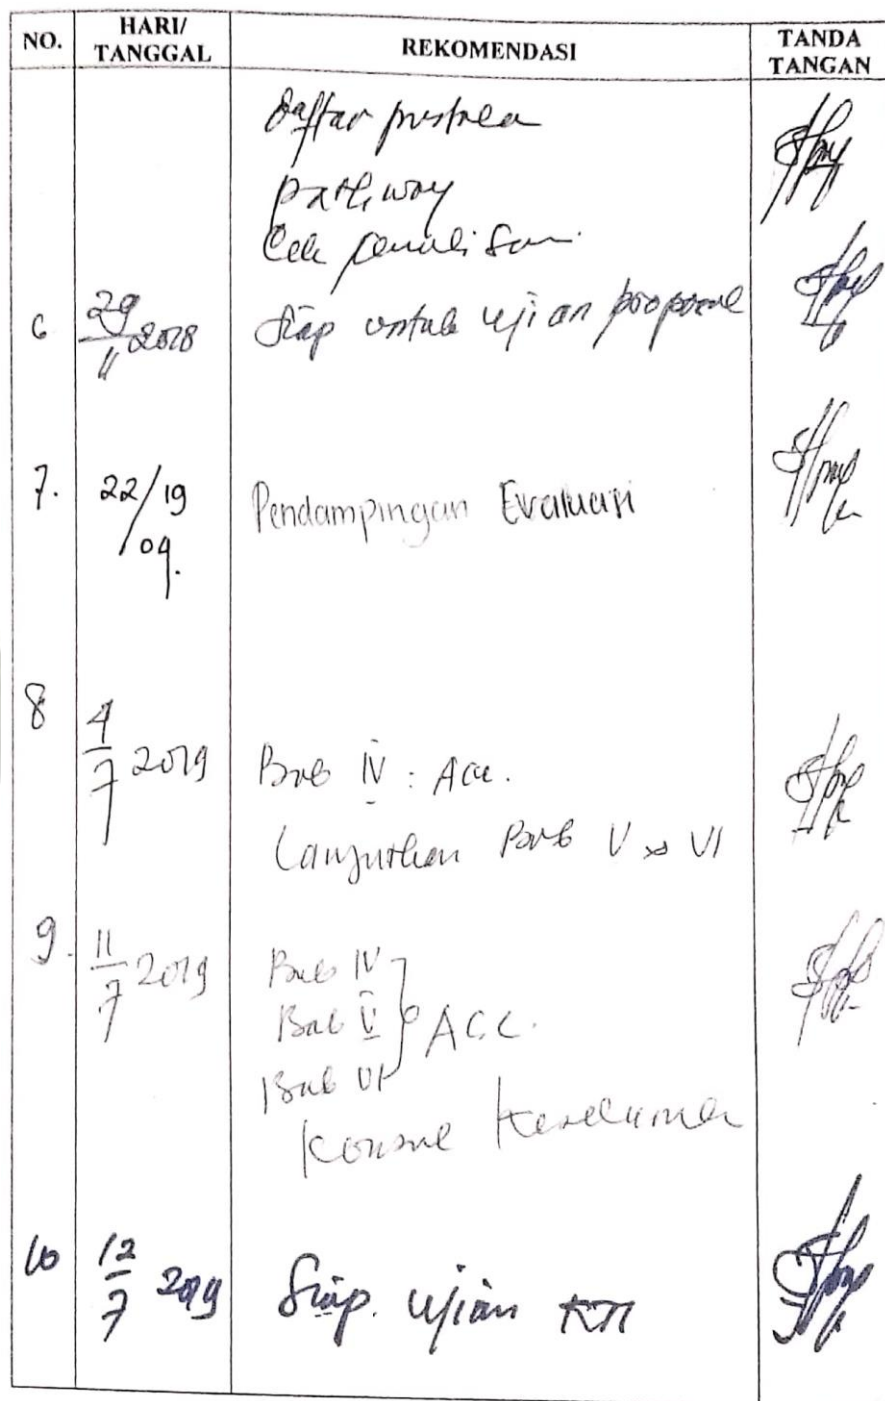 NO. HARI/ TANGGAL REKOMENDASI TANDA TANGAN
Daftar pustaka
pathway
Cek penulisan
6 29/11 2018 Siap untuk ujian proposal
7. 22/19 /04. Pendampingan Evaluasi
8 4/7 2019 Bab IV : Acc.
Lanjutkan Bab V VI
9. 11/7 2019 Bab IV
Bab V ACC.
Bab VI
Konsul Keseluruhan
10 12/7 2019 Siap ujian KTI